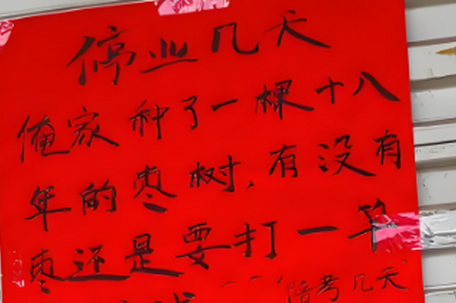 停业几天
俺家种了一棵十八
年的枣树,有没有
枣还是要打一竿
陪考几天